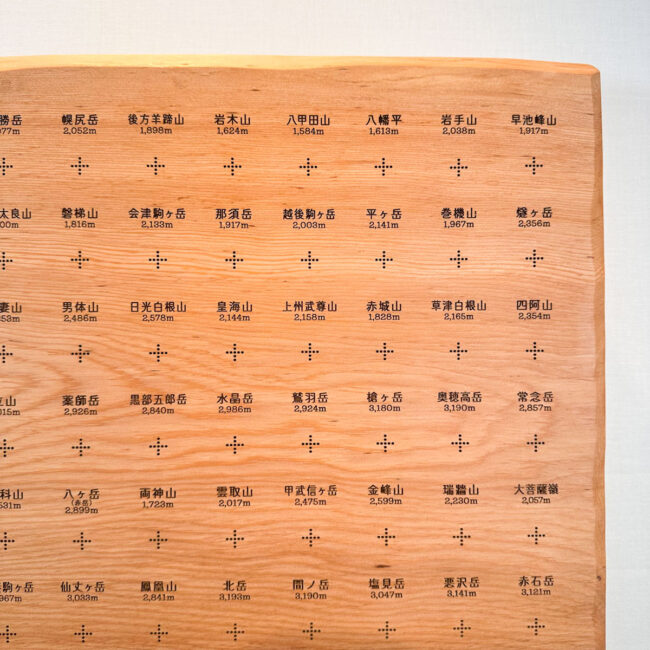 勝岳 幌尻岳 後方羊蹄山 岩木山 八甲田山 八幡平 岩手山 早池峰山
077m 2,052m 1,898m 1,624m 1,584m 1,613m 2,038m 1,917m
太良山 磐梯山 会津駒ヶ岳 那須岳 越後駒ヶ岳 平ヶ岳 巻機山 燧ヶ岳
00m 1,816m 2,133m 1,917m 2,003m 2,141m 1,967m 2,356m
妻山 男体山 日光白根山 皇海山 上州武尊山 赤城山 草津白根山 四阿山
53m 2,486m 2,578m 2,144m 2,158m 1,828m 2,165m 2,354m
立山 薬師岳 黒部五郎岳 水晶岳 鷲羽岳 槍ヶ岳 奥穂高岳 常念岳
015m 2,926m 2,840m 2,986m 2,924m 3,180m 3,190m 2,857m
科山 八ヶ岳 両神山 雲取山 甲武信ヶ岳 金峰山 瑞牆山 大菩薩嶺
(赤岳)
531m 2,899m 1,723m 2,017m 2,475m 2,599m 2,230m 2,057m
駒ヶ岳 仙丈ヶ岳 鳳凰山 北岳 間ノ岳 塩見岳 悪沢岳 赤石岳
967m 3,033m 2,841m 3,193m 3,190m 3,047m 3,141m 3,121m